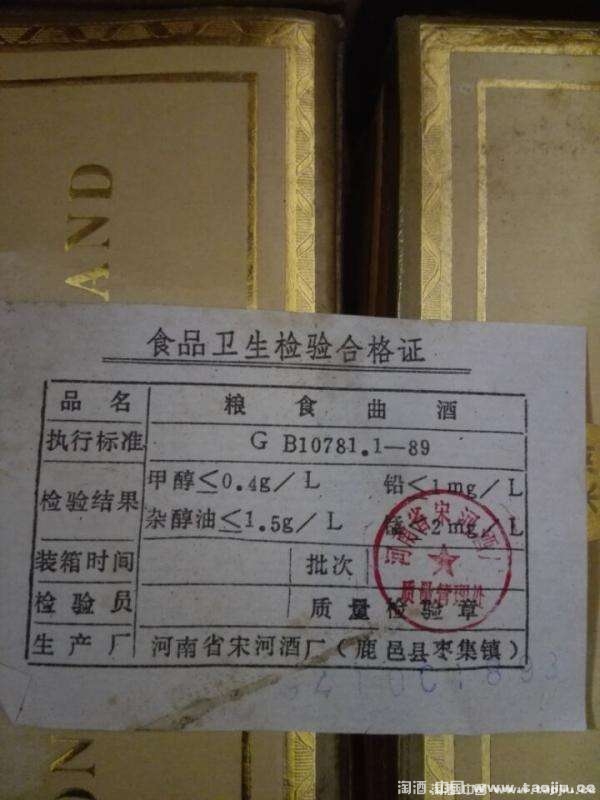 AND
食品卫生检验合格证
品名 粮食曲酒
执行标准 GB10781.1—89
检验结果 甲醇≤0.4g/L 铅≤1mg/L
杂醇油≤1.5g/L 锰≤2mg/L
河南省宋河酒厂
质量管理处
装箱时间 批次
检验员 质量检验章
生产厂 河南省宋河酒厂（鹿邑县枣集镇）
ON
淘酒·中国 www.taojiu.cc